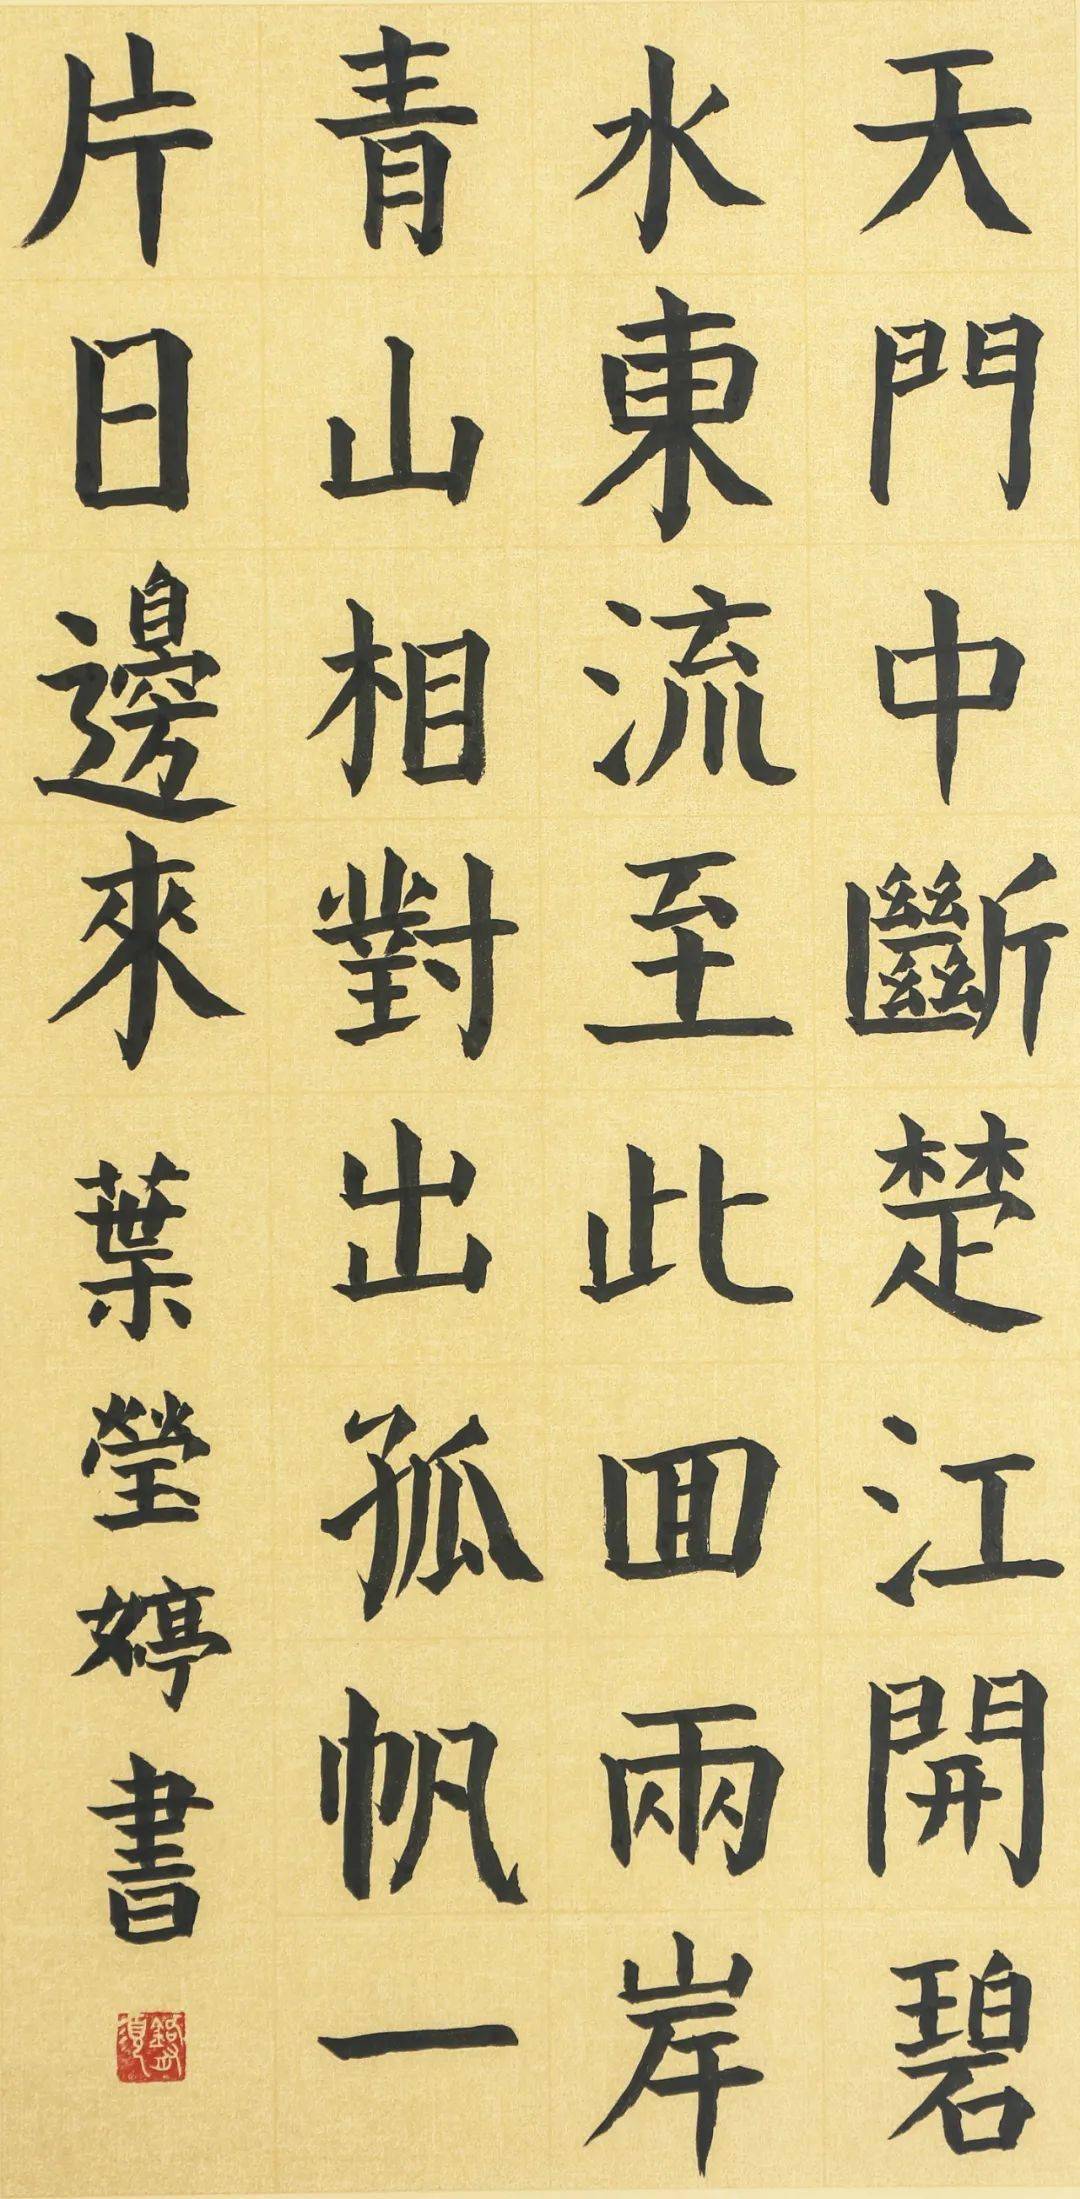 天門中斷楚江開碧
水東流至此回兩岸
青山相對出孤帆一
片日邊來
葉瑩婷書